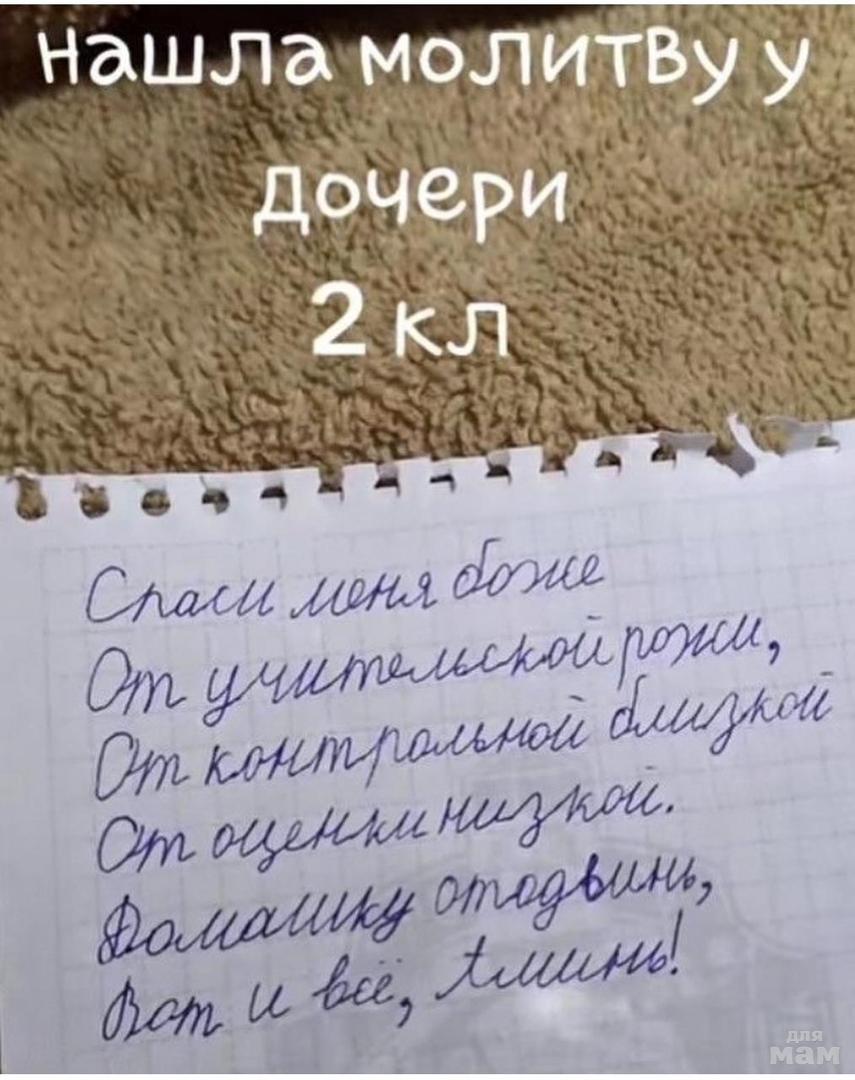 нашла молитву у
дочери
2 кл
Спаси меня боже
От учительской рожи,
От контрольной близкой
От оценки низкой.
Домашку отодвинь,
Вот и всё, Аминь!
для
мам